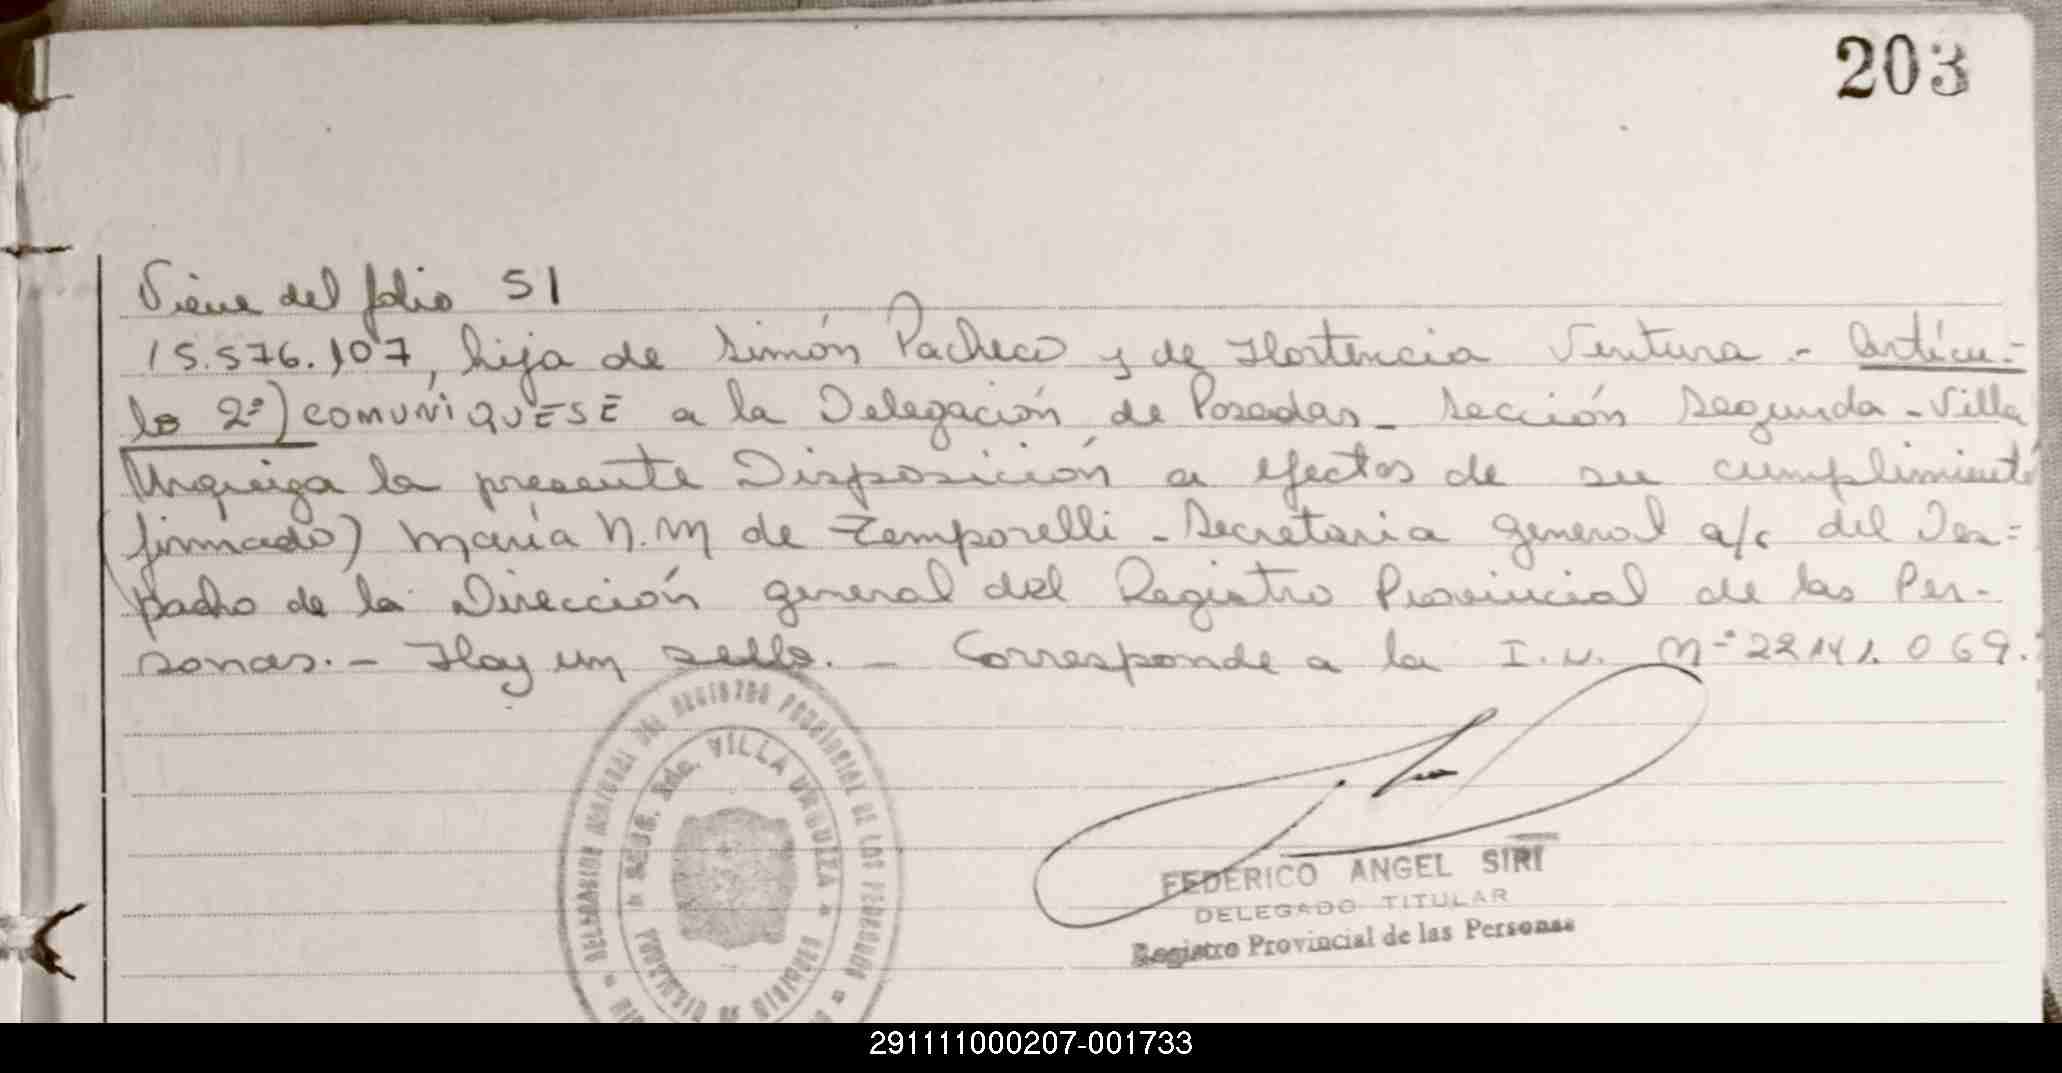 203
Viene del folio 51
15.576.107, hija de Simón Pacheco y de Hortencia Ventura.- Artícu=
lo 2º) COMUNIQUESE a la Delegación de Posadas- Sección Segunda - Villa
Urquiza la presente Disposición a efectos de su cumplimiento
(firmado) María N. M de Zemporelli - Secretaria general a/c del Des=
pacho de la Dirección general del Registro Provincial de las Per-
sonas.- Hay un sello.- Corresponde a la I.N. Nº 22141.069.
DELEGACION REGISTRO PROVINCIAL DE LAS PERSONAS
SEGUNDA VILLA URQUIZA
PROVINCIA DE MISIONES
FEDERICO ANGEL SIRI
DELEGADO TITULAR
Registro Provincial de las Personas
291111000207-001733